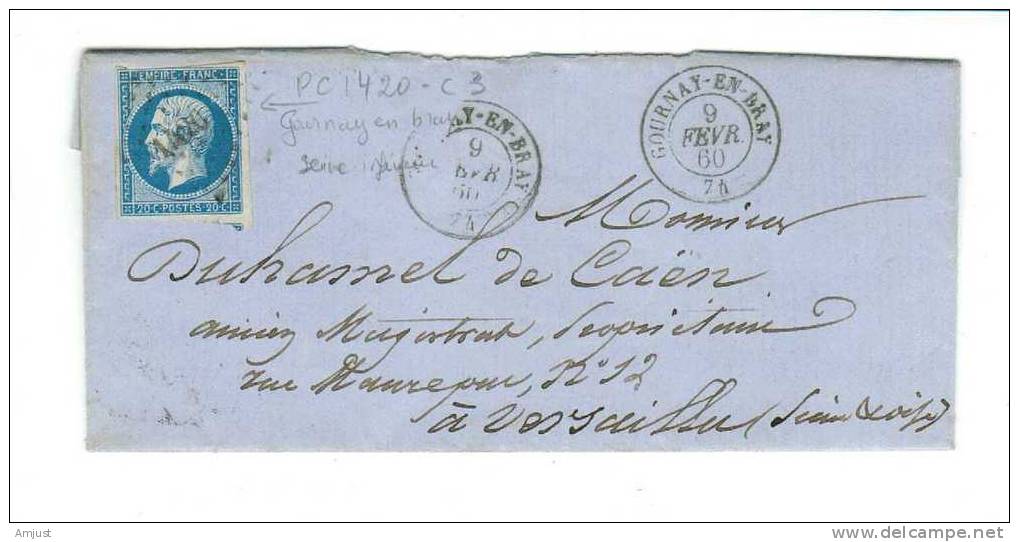 EMPIRE FRANC.
1420
20 C. POSTES 20 C.
PC 1420 - C 3
Gournay en bray
Seine
AY-EN-BRAY
9
60
7h
GOURNAY-EN-BRAY
9
FEVR.
60
7h
Monsieur
Duhamel de Caën
ancien Magistrat, Propriétaire
rue Maurepas, No 12
à Versailles (Seine & Oise)
Amjust
delcampe.net